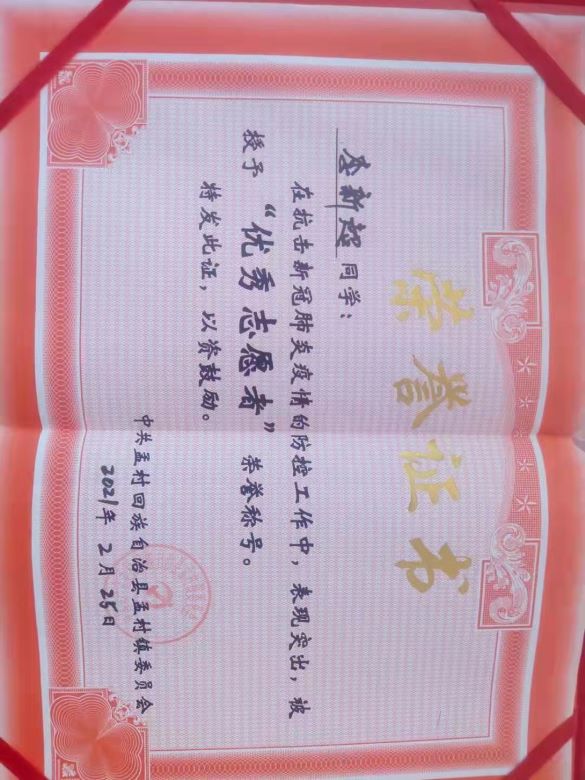 荣誉证书
李新超 同学：
在抗击新冠肺炎疫情的防控工作中，表现突出，被
授予 “优秀志愿者” 荣誉称号。
特发此证，以资鼓励。
中共孟村回族自治县孟村镇委员会
2021年2月25日